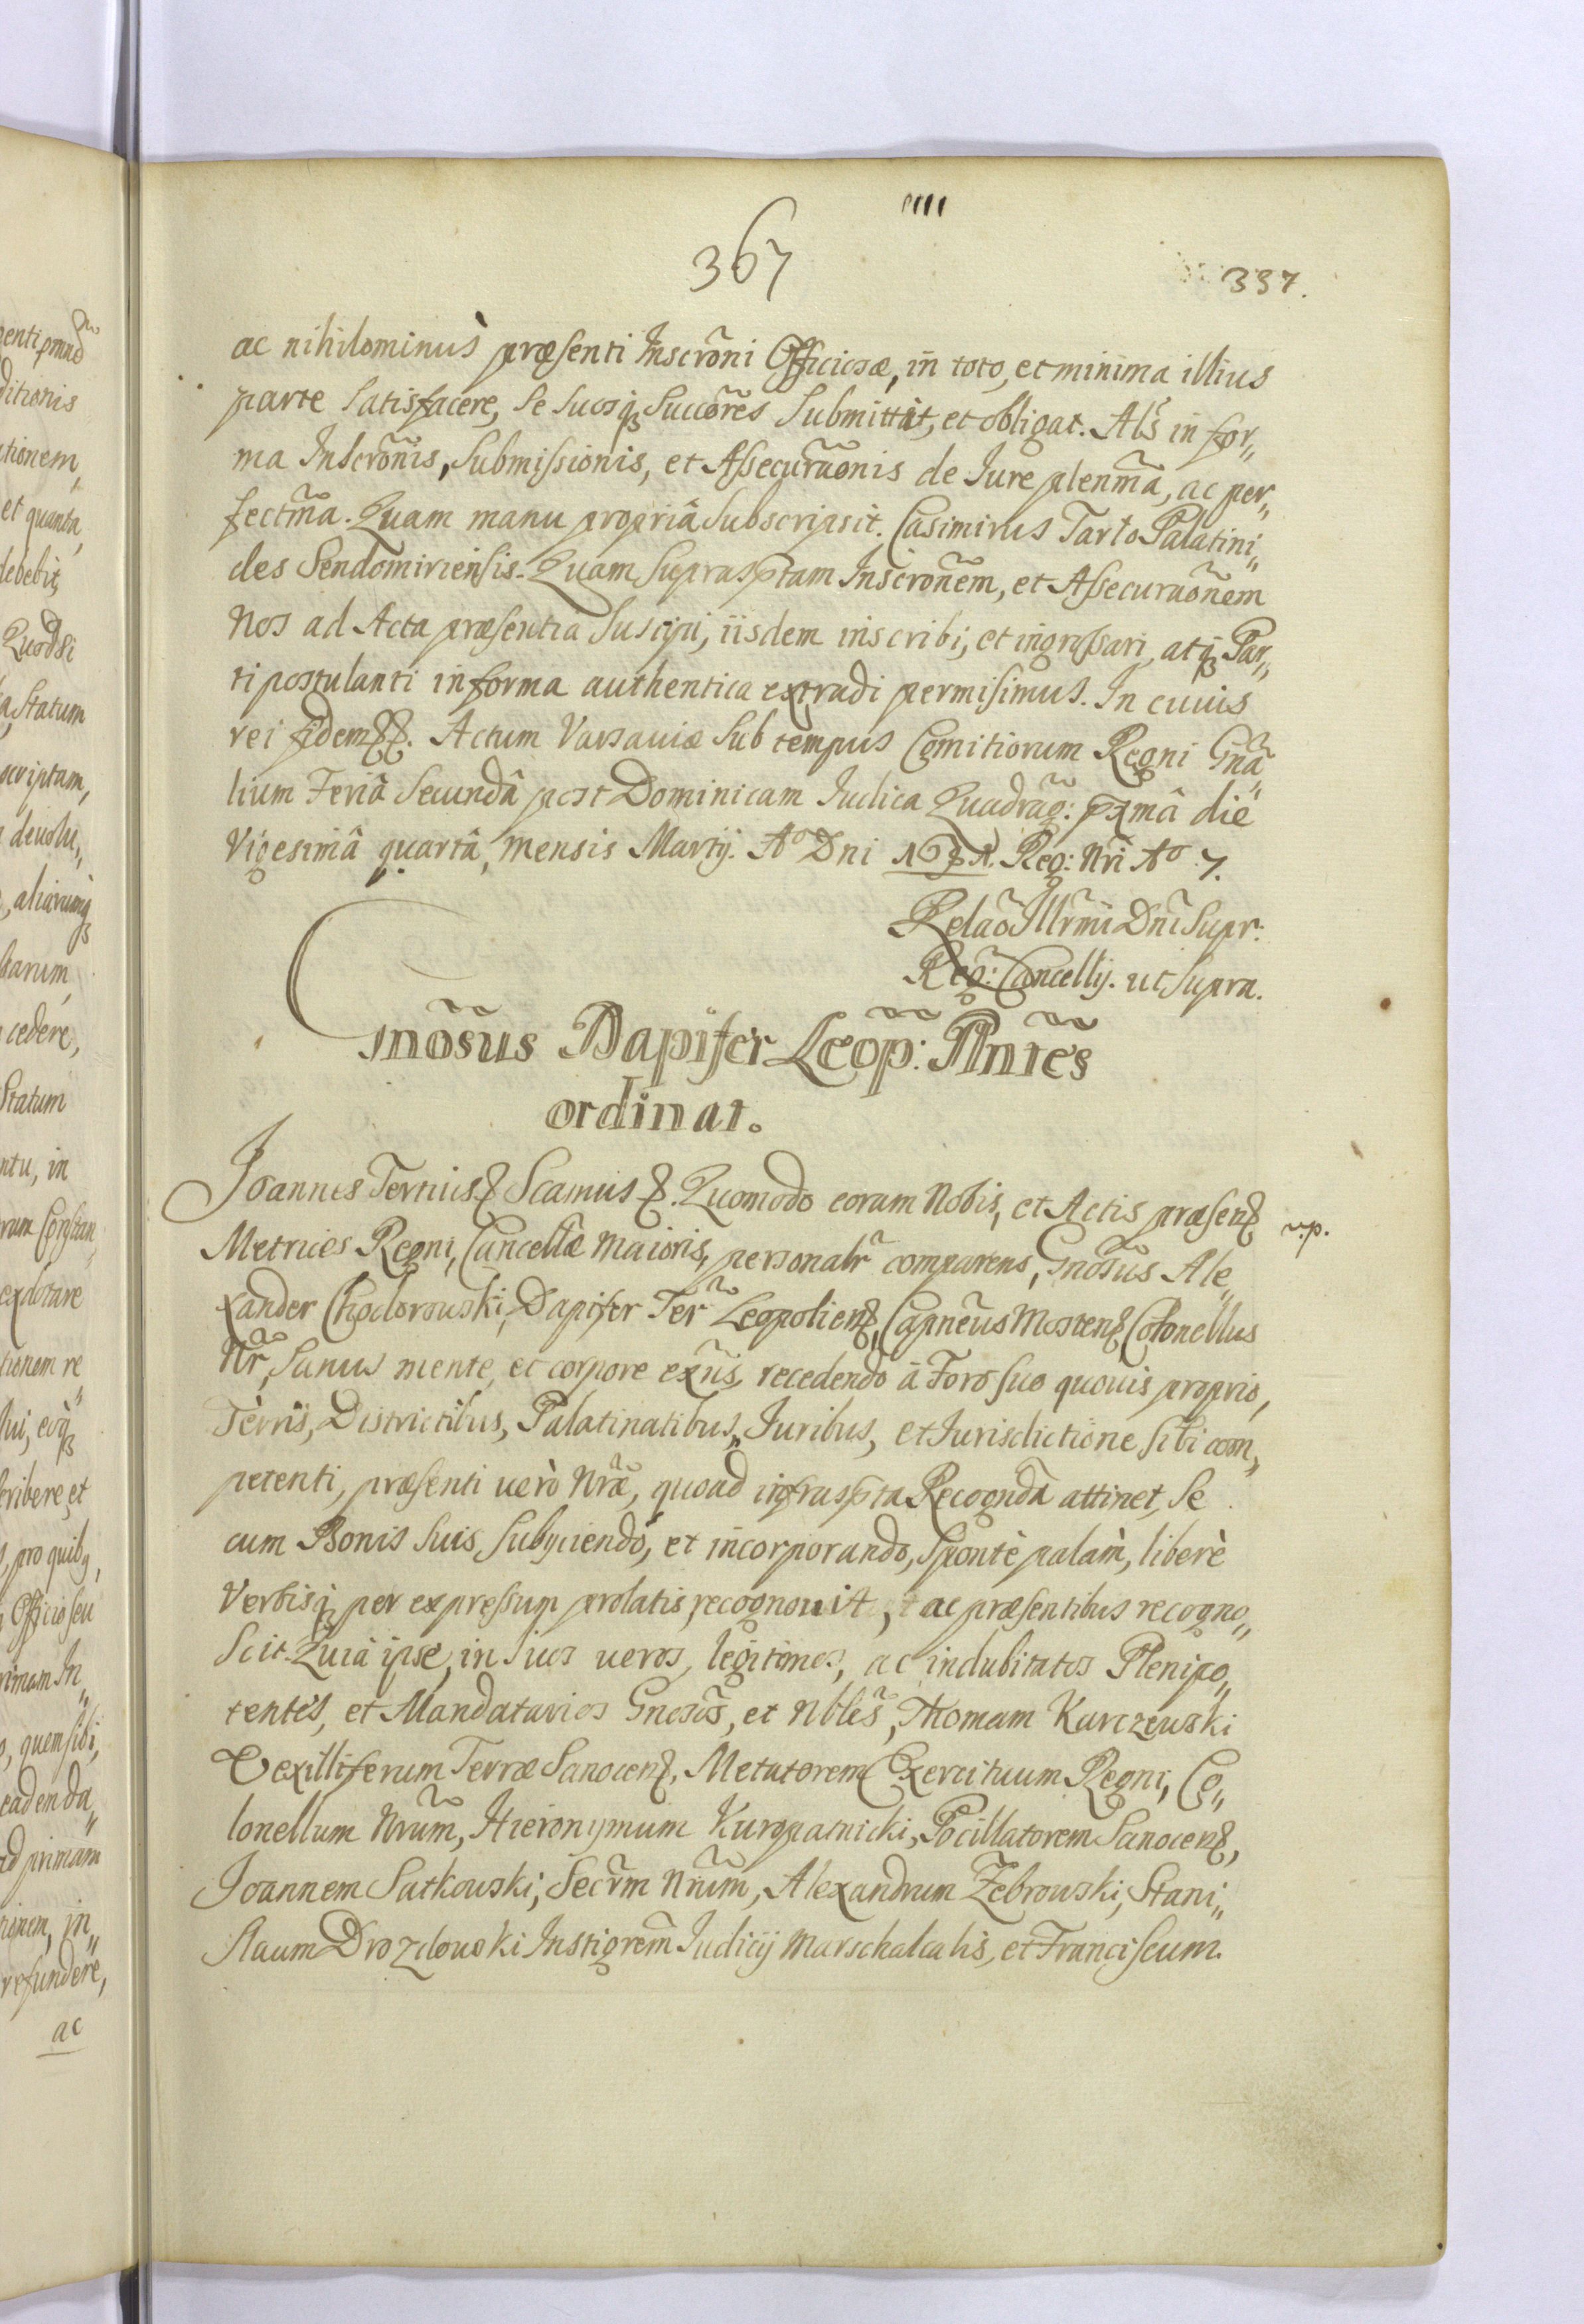 367
337.
ac nihilominùs præsenti Inscrõni Officiosæ, in toto, et minima illius
parte satisfacere, se suosq₃ succõres submittit, et obligat. Als̃ in for„
ma Inscrõnis, submissionis, et Assecurãonis de Iure plenm̃a, ac per„
fectm̃a. Quam manu propriâ subscripsit. Casimirus Tarło Palatini„
des Sendomiriensis. Quam suprasptam Inscrõnem, et Assecurãonem
Nos ad Acta præsentia suscipi, iisdem inscribi, et ingrossari, atq₃ Par„
ti postulanti in forma authentica extradi permisimus. In cuius
rei fidem &&. Actum Varsaviæ sub tempus Comitiorum Regni Gnã„
lium Feriâ secundâ post Dominicam Iudica Quadrag̃: pxmâ die
Vigesimâ quartâ, mensis Martij. Aᵒ Dni 1681. Reg: Nri Aᵒ 7.
Relaõ Illrm̃i Dnĩ Supr:
Reg: Cancellij. ut supra.
Gnõsus Dapifer Leõp: Plñtes
ordinat.
Joannes Tertius & Scamus &. Quomodo coram Nobis, et Actis præsen&
v.p.
Metrices Regni, Cancellæ Maioris, personalr̃ comparens, Gnõsus Ale„
xander Chodorowski, Dapifer Ter̃ Leopolien&, Capnẽus Mosten& Colonellus
Nr̃, sanus mente, et corpore exñs, recedendo à Foro suo quovis proprio,
Terris, Districtibus, Palatinatibus, Iuribus, et Iurisdictione sibi com„
petenti, præsenti verò Nræ̃, quoad infraspta Recognda attinet, se
cum Bonis suis subijciendo, et incorporando, spontè palàm, liberè
Verbisq₃ per expressum prolatis, recognovit, ac præsentibus recogno„
scit. Quia ipse, in suos veros, legitimos, ac indubitatos Plenipo„
tentes, et Mandatarios Gnosõs, et Nblẽs, Thomam Karczewski
Vexilliferum Terræ Sanocen&, Metatorem Exercituum Regni, Co„
lonellum Nrũm, Hieronymum Kuropatnicki, Pocillatorem Sanocen&,
Joannem Sutkowski, Secrm̃ Nrũm, Alexandrum Zebrowski, Stani„
slaum Drozdowski Instigrem̃ Iudicij Marschalcalis, et Franciscum